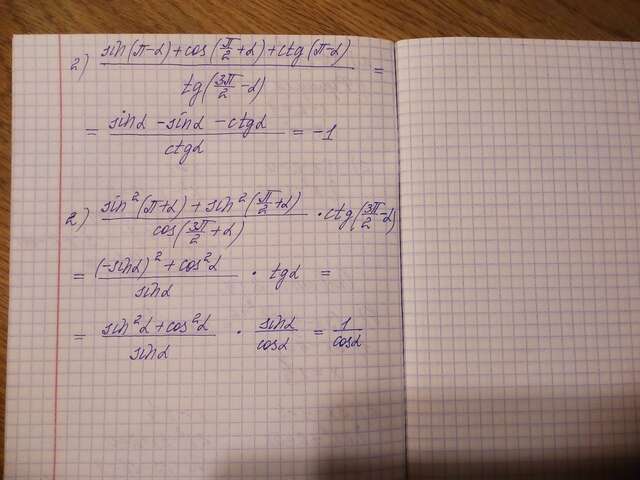 2) (sin(π-α)+cos(π/2+α)+ctg(π-α))/(tg(3π/2-α)) =
= (sinα - sinα - ctgα)/(ctgα) = -1
2) (sin²(π+α)+sin²(π/2+α))/(cos(3π/2+α)) · ctg(3π/2-α)
= ((-sinα)²+cos²α)/(sinα) · tgα =
= (sin²α+cos²α)/(sinα) · sinα/cosα = 1/cosα